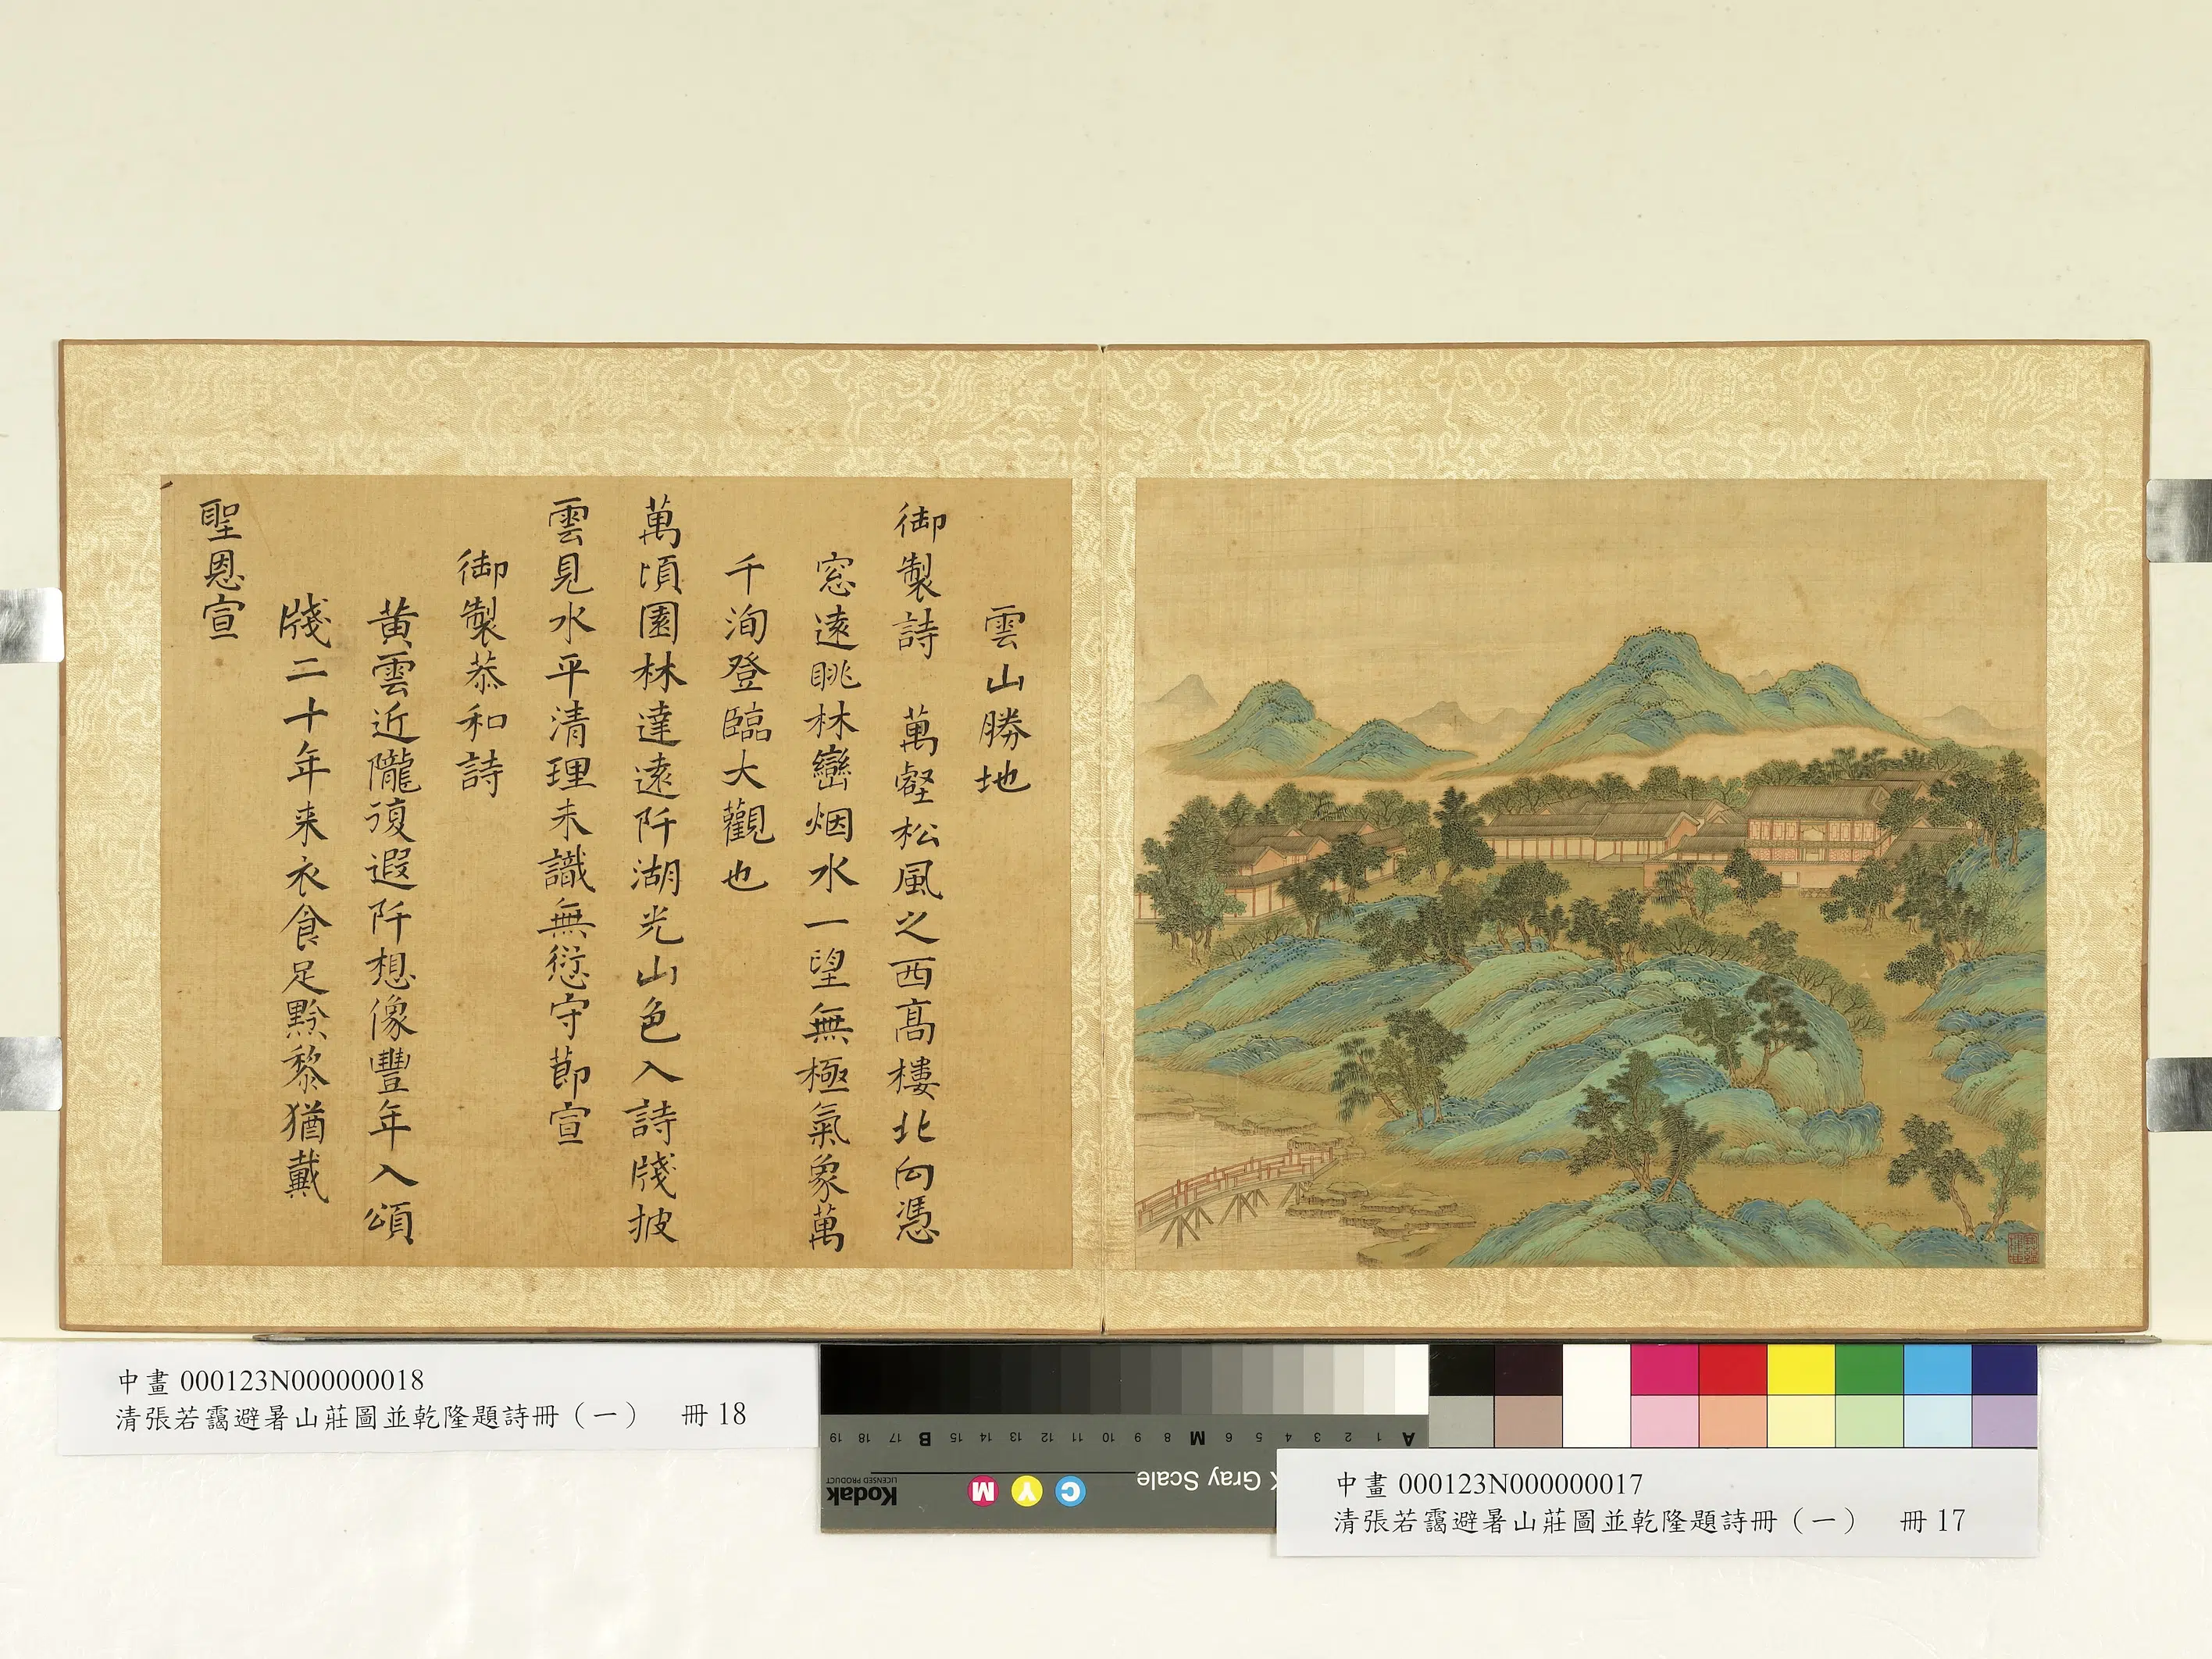 雲山勝地
御製詩 萬壑松風之西高樓北向憑
窓遠眺林巒烟水一望無極氣象萬
千洵登臨大觀也
萬頃園林達遠阡湖光山色入詩牋披
雲見水平清理未識無愆守節宣
御製恭和詩
黃雲近隴復遐阡想像豐年入頌
牋二十年来衣食足黔黎猶戴
聖恩宣
中畫 000123N000000018
清張若靄避暑山莊圖並乾隆題詩冊（一） 冊 18
A 1 2 3 4 5 6 M 8 9 10 11 12 13 14 15 B 17 18 19
Gray Scale
C Y M
Kodak
LICENSED PRODUCT
中畫 000123N000000017
清張若靄避暑山莊圖並乾隆題詩冊（一） 冊 17